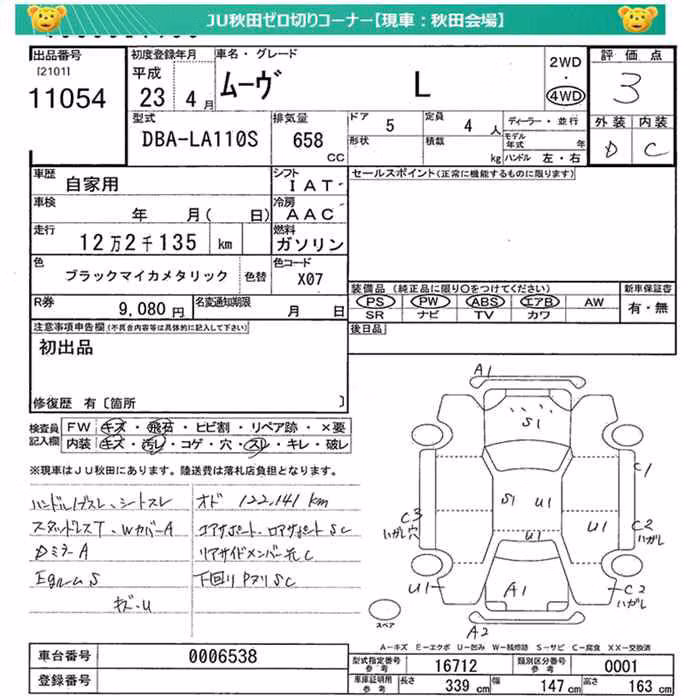 JU秋田ゼロ切りコーナー【現車：秋田会場】
出品番号 初度登録年月 車名・グレード 2WD ・ 4WD 評価点
[2101] 11054 平成 23年 4月 ムーヴ L 3
型式 排気量 ドア 5 定員 4人 ディーラー・並行 外装 内装
DBA-LA110S 658 CC 形状 積載 kg モデル年式 年 D C
ハンドル 左・右
車歴 自家用 シフト IAT セールスポイント(正常に機能するものに限ります)
車検 年 月( 日) 冷房 AAC
走行 12万2千135 km 燃料 ガソリン
色 ブラックマイカメタリック 色替 色コード X07
装備品 (純正品に限り○をつけてください) 新車保証書
R券 9,080円 名変通知期限 月 日 PS PW ABS エアB AW 有・無
SR ナビ TV カワ
注意事項申告欄(不具合内容等は具体的に記入して下さい) 後日品
初出品
修復歴 有〔箇所 〕
検査員記入欄 FW キズ・飛石・ヒビ割・リペア跡・×要
内装 キズ・汚レ・コゲ・穴・スレ・キレ・破レ
※現車はJU秋田にあります。陸送費は落札店負担となります。
ハンドルスレ、シートスレ
スタッドレスT、WカバーA
DミラーA
EgルームS
キズ・U
オド 122,141 km
コアサポート・ロアサポートSC
リアサイドメンバー先C
下回りサブリSC
A1
S1
C1
S1 U1
C3 ハガレ穴
U1
U1 C2 ハガレ
A1
U1 C2 ハガレ
A2
スペア
A－キズ E－エクボ U－凹み W－補修跡 S－サビ C－腐食 XX－交換済
車台番号 0006538 型式指定番号 参考 16712 類別区分番号 参考 0001
登録番号 車庫証明用 参考 長さ 339cm 幅 147cm 高さ 163cm